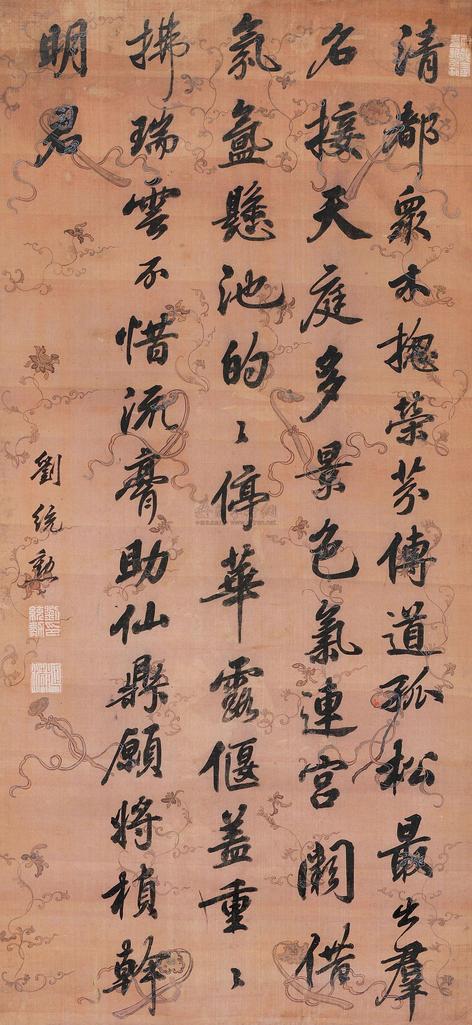 清都眾木捴榮芬傳道孤松最出羣
名接天庭多景色氣連宮闕借
氛氳懸池的〻停華露偃蓋重〻
拂瑞雲不惜流膏助仙鼎願將楨幹
明君
劉統勳